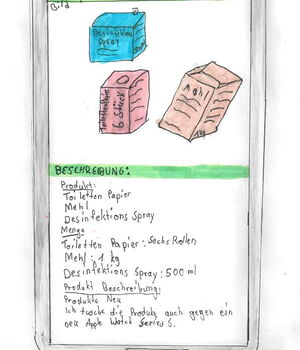 Bild
Desinfektions
Spray
500ml
Toiletten Papier
6 Stück
Mehl
1kg
BESCHREIBUNG:
Produkt:
Toiletten Papier
Mehl
Desinfektions Spray
Menge
Toiletten Papier: Sechs Rollen
Mehl: 1 kg
Desinfektions Spray: 500 ml
Produkt Beschreibung:
Produkte Neu
Ich tusche die Produkte auch gegen ein
neu Apple Watch Series 5.